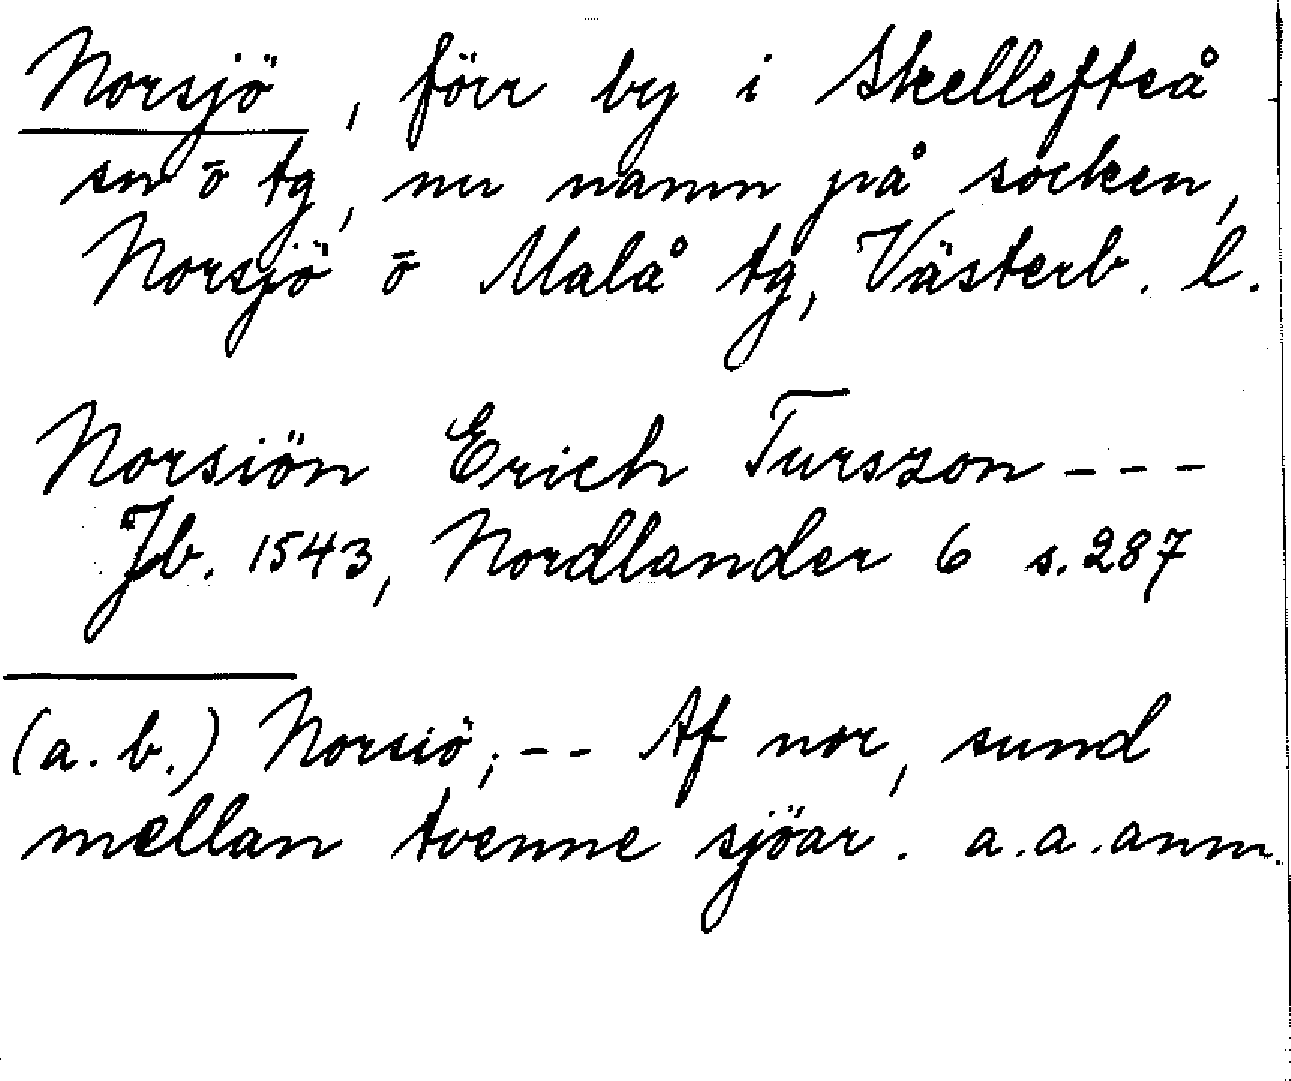 Norsjö, förr by i Skellefteå
sn o tg, nu namn på socken,
Norsjö o Malå tg, Västerb. l.
Norsiön Erich Turszon - - -
Jb. 1543, Nordlander 6 s. 287
(a. b.) Norsiö; - - Af nor, sund
mellan tvenne sjöar. a. a. anm.